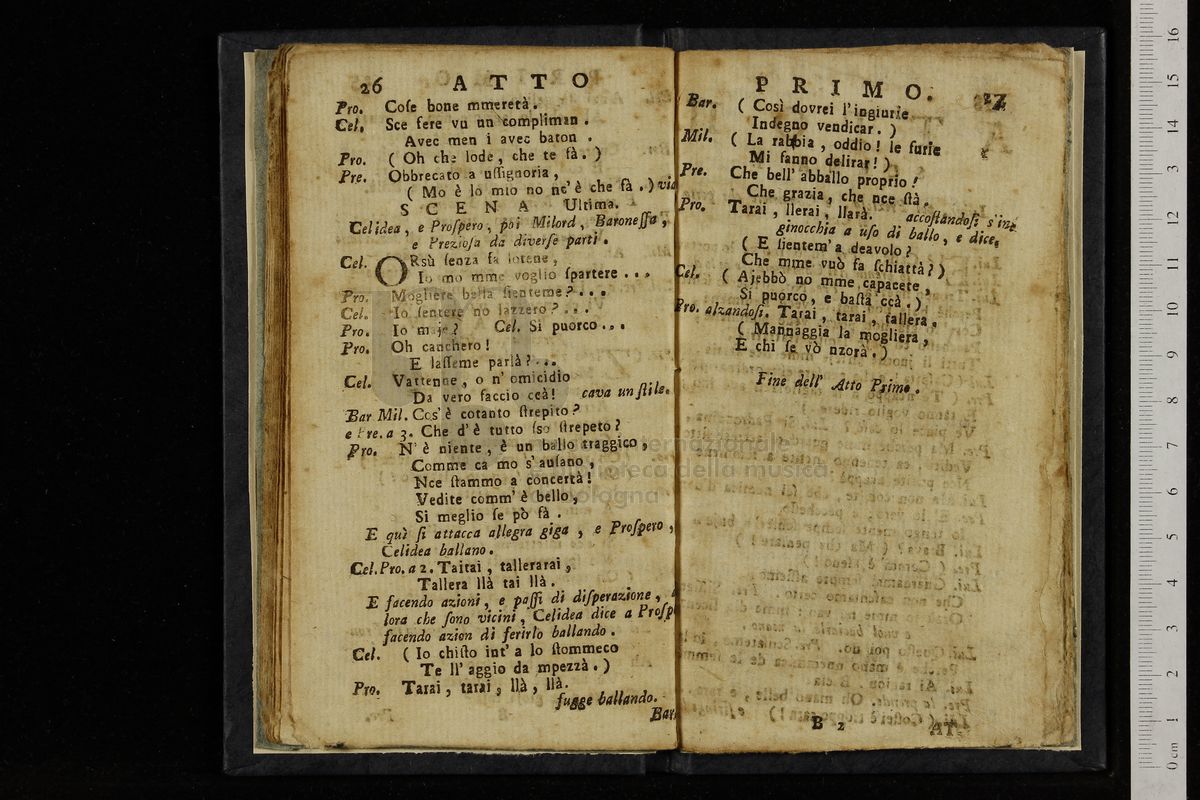 26 ATTO
Pro. Coſe bone mmeretà.
Cel. Sce fere vu un compliman.
Avec men i avec baton.
Pro. ( Oh che lode, che te fà. )
Pre. Obbrecato a uſſignoria,
( Mo è lo mio no ne' è che fà. ) via
SCENA Ultima.
Celidea, e Proſpero, poi Milord, Baroneſſa,
e Prezioſa da diverſe parti.
Cel. ORsù ſenza fa lotene,
Io mo mme voglio ſpartere...
Pro. Mogliere bella ſienteme?...
Cel. Io ſentere no jazzero?...
Pro. Io maje? Cel. Si puorco...
Pro. Oh canchero!
E laſſeme parlà?...
Cel. Vattenne, o n' omicidio
Da vero faccio ccà! cava un ſtile.
Bar Mil. Cos' è cotanto ſtrepito?
e Pre. a 3. Che d' è tutto ſso ſtrepeto?
Pro. N' è niente, è un ballo traggico,
Comme ca mo s' auſano,
Nce ſtammo a concertà!
Vedite comm' è bello,
Si meglio ſe pò fà.
E quì ſi attacca allegra giga, e Proſpero,
Celidea ballano.
Cel. Pro. a 2. Taitai, tallerarai,
Tallera llà tai llà.
E facendo azioni, e paſſi di diſperazione,
lora che ſono vicini, Celidea dice a Proſp
facendo azion di ferirlo ballando.
Cel. ( Io chiſto int' a lo ſtommeco
Te ll' aggio da mpezzà. )
Pro. Tarai, tarai, llà, llà.
fugge ballando.
Bar.
PRIMO. 27
Bar. ( Così dovrei l' ingiurie
Indegno vendicar. )
Mil. ( La rabbia, oddio! le furie
Mi fanno delirar! )
Pre. Che bell' abballo proprio!
Che grazia, che nce ſtà.
Pro. Tarai, llerai, llarà. accoſtandoſi s' in
ginocchia a uſo di ballo, e dice.
( E ſientem' a deavolo?
Che mme vuò fa ſchiattà? )
Cel. ( Ajebbò no mme capacete,
Si puorco, e baſta ccà. )
Pro. alzandoſi. Tarai, tarai, tallera.
( Mannaggia la mogliera,
E chi ſe vò nzorà. )
Fine dell' Atto Primo.
B 2
AT-
0 cm 1 2 3 4 5 6 7 8 9 10 11 12 13 14 15 16